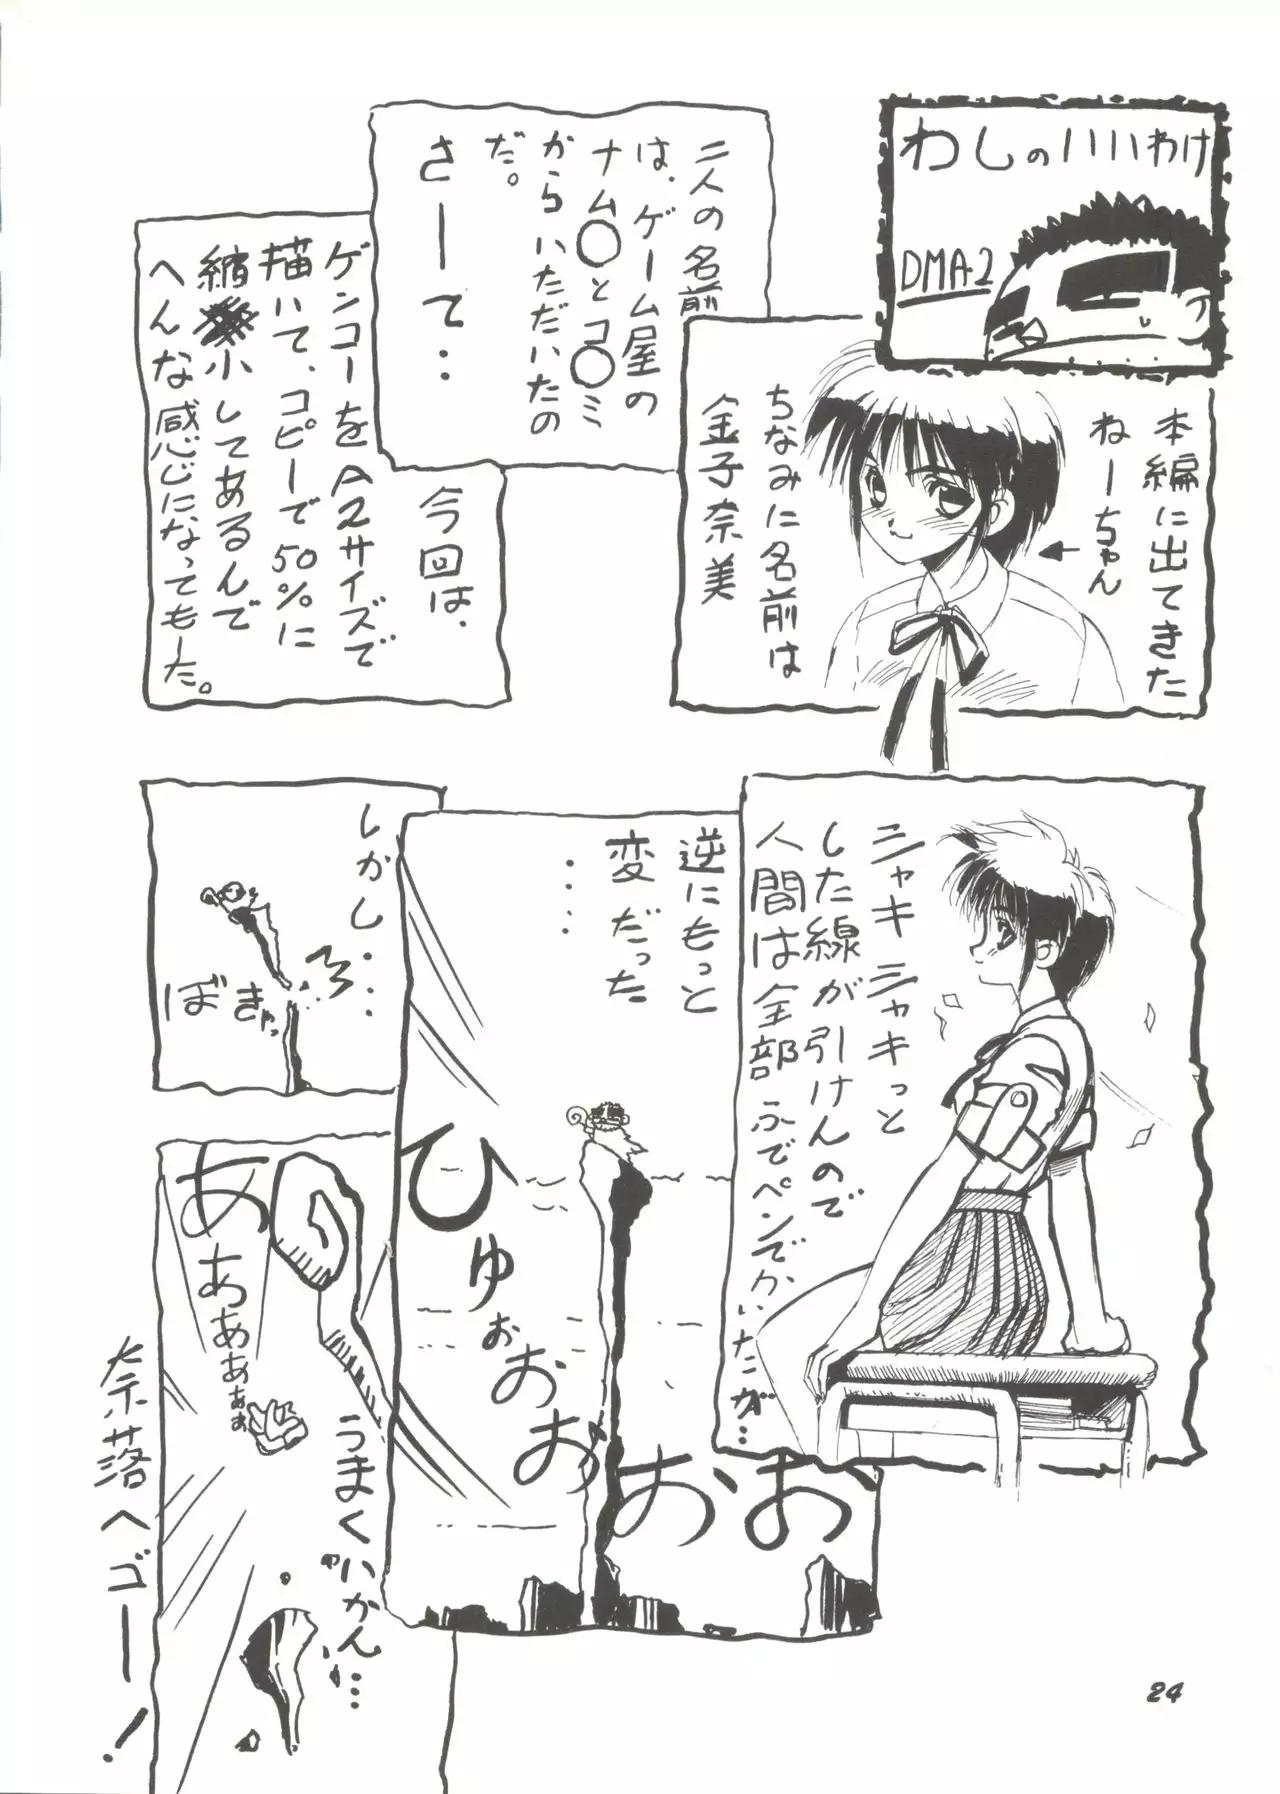 わしのいいわけ
DMA2
本編に出てきた
ねーちゃん
ちなみに名前は
金子奈美
二人の名前
は、ゲーム屋の
ナム〇とコ〇ミ
からいただいたの
だ。
さーて‥
今回は、
ゲンコーをA2サイズで
描いて、コピーで50%に
縮小してあるんで
へんな感じになってもーた。
シャキシャキっと
した線が引けんので
人間は全部ふでペンでかいたが…
逆にもっと
変だった
‥‥
ひゅぉおおおお
しかし‥‥
ぼきゃっ
あああぁぁぁ
うまくいかん…
奈落へゴー!
24